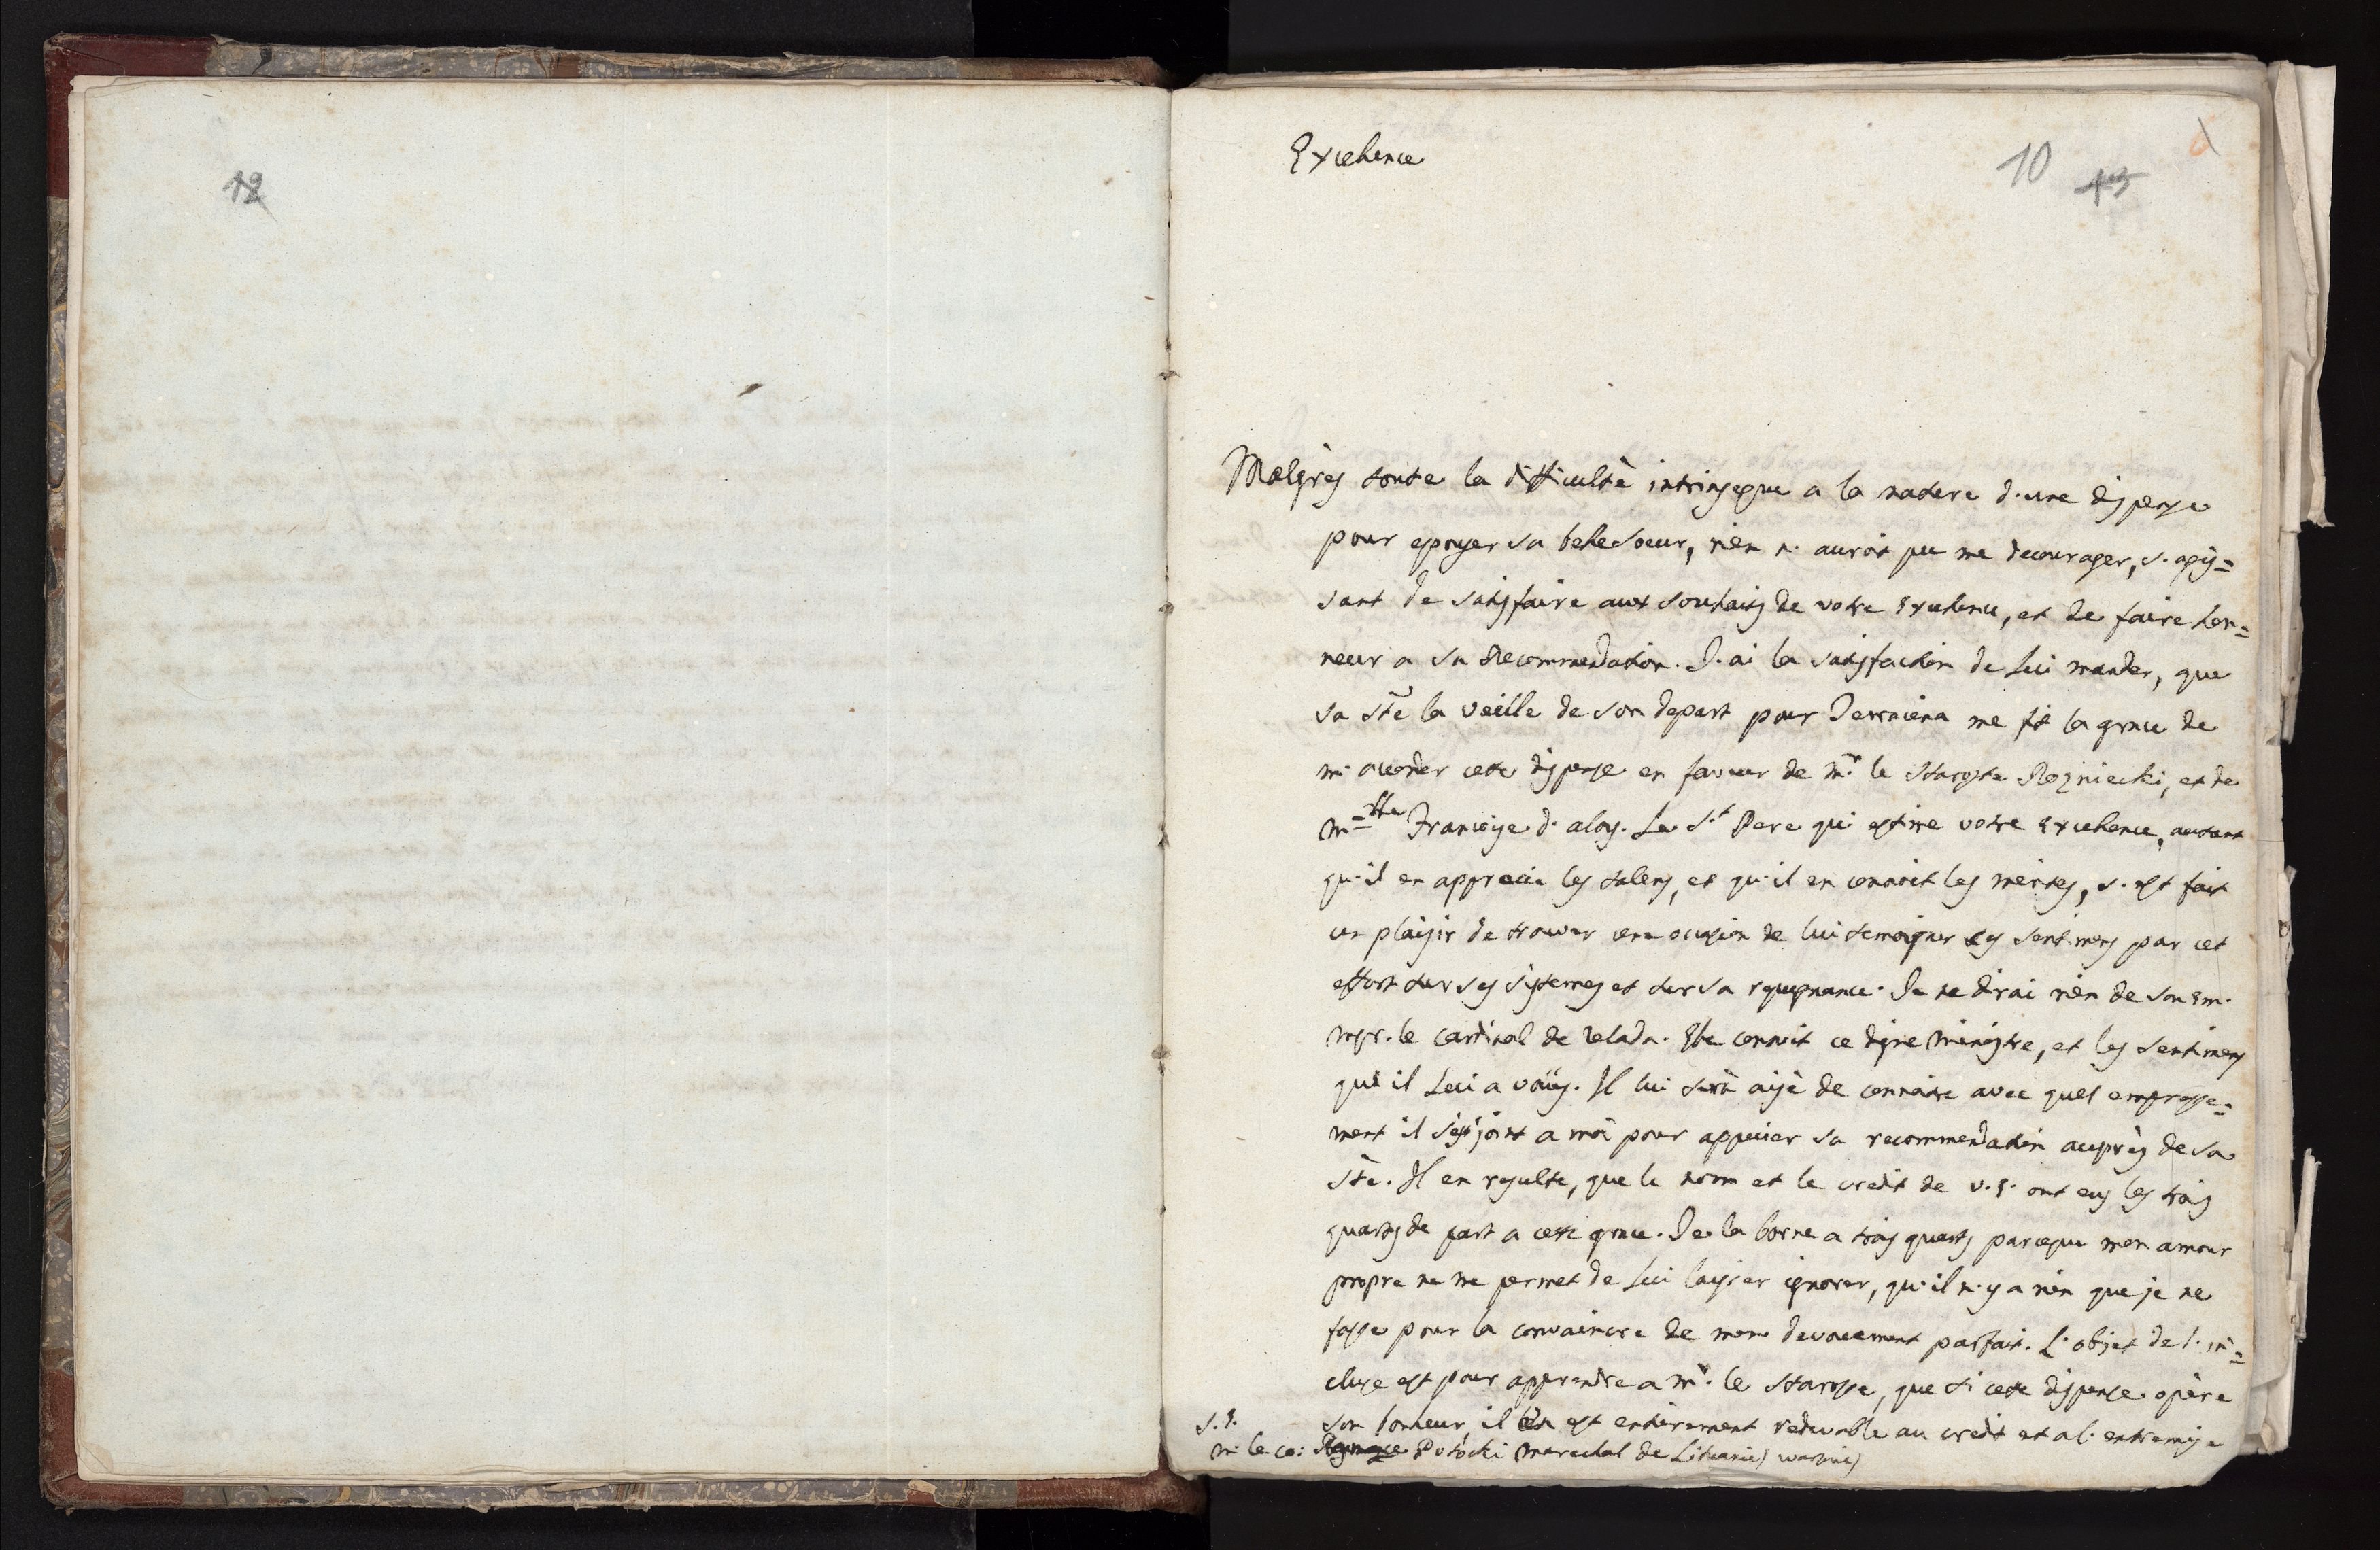 12
Excellence
10 13
Malgrès toute la difficultè intrinseque a la nature d'une dispense
pour epouser sa belle soeur, rien n'auroit pu me decourager, s'agis=
sant de satisfaire aux souhaits de votre Excellence, et de faire hon=
neur a sa Recommendation. J'ai la satisfaction de Lui mander, que
sa Stè la veille de son depart pour Terracina me fit la grace de
m'accorder cette dispense en faveur de Mr. le Staroste Rozniecki, et de
M=lle Françoise d'aloy. Le St. Pere qui estime votre Excellence, autant
qu'il en apprecie les talens, et qu'il en connoit les merites, s'est fait
un plaisir de trouver une occasion de lui temoigner ses sentimens par cet
effort sur ses sistemes et sur sa repugnance. Je ne dirai rien de son Em.
Mgr. le Cardinal de Zelada. Elle connoit ce digne Ministre, et les sentimens
qu'il Lui a voüés. Il lui serà aisè de connoitre avec quel empresse=
ment il s'est joint a moi pour appuier sa recommendation auprès de sa
Stè. Il en resulte, que le nom et le credit de V. E. ont eus les trois
quarts de part a cette grace. Je la borne a trois quarts parceque mon amour
propre ne me permet de Lui laisser ignorer, qu'il n'y a rien que je ne
fasse pour la convaincre de mon devouement parfait. L'objet de l'in=
cluse est pour apprendre a Mr. le Staroste, que si cette dispense opère
son bonheur, il en est entierement redevable au credit et a l'entremise
S. E.
M. le Co: Ignace Potocki Marechal de Lituanie) Varsovie)